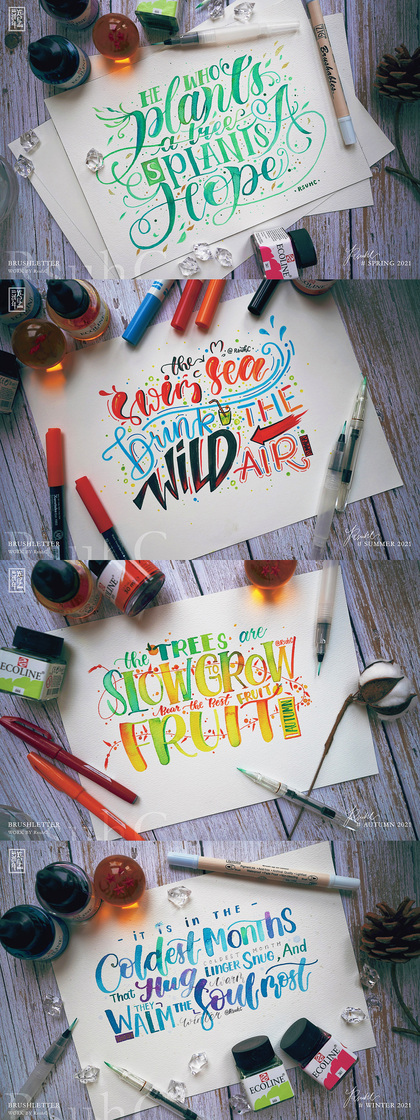 HE WHO
plants
a tree
S PLANTS A
Hope
- RSUHC -
Brushables
ECOLINE
BRUSHLETTER
WORK BY RsuhC
RsuhC
# SPRING 2021
the
@RsuhC
Swim sea
Drink THE
WILD AIR
BRUSHLETTER
WORK BY RsuhC
RsuhC
# SUMMER 2021
ECOLINE
the TREES are
@RsuhC
SLOW TO GROW
Bear the Best FRUIT
FRUIT
AUTUMN
BRUSHLETTER
WORK BY RsuhC
# AUTUMN 2021
- IT IS IN THE -
Coldest Months
COLDEST MONTH
That Hug LINGER SNUG, And
warm
THEY
WALM THE Soul most
winter @RsuhC
ECOLINE
ECOLINE
BRUSHLETTER
WORK BY RsuhC
RsuhC
# WINTER 2021